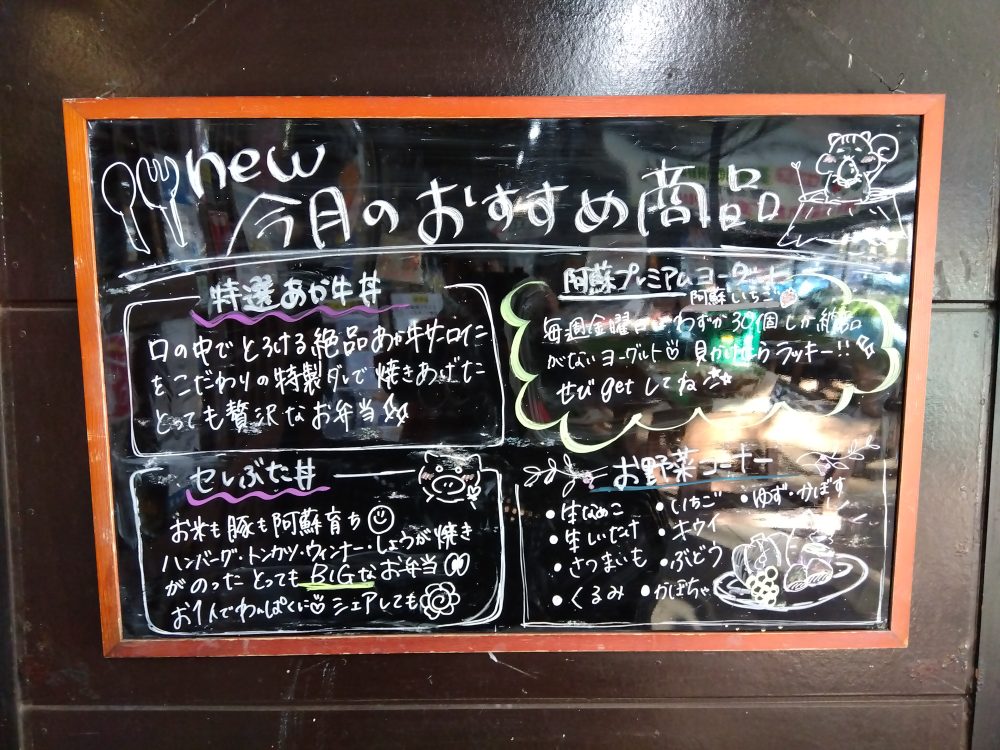 new
今月のおすすめ商品
特選あか牛丼
口の中でとろける絶品あか牛サーロイン
をこだわりの特製ダレで焼きあげた
とっても贅沢なお弁当
阿蘇プレミアムヨーグルト
阿蘇いちご
毎週金曜日はわずか30個しか納品
がないヨーグルト♡ 見かけたらラッキー!!
ぜひgetしてね
セレぶた丼
お米も豚も阿蘇育ち
ハンバーグ・トンカツ・ウィンナー・しょうが焼き
がのったとってもBIGなお弁当
お1人でわんぱくに♡シェアしても
お野菜コーナー
・生なめこ ・いちご ・ゆず・かぼす
・生しいたけ ・キウイ
・さつまいも ・ぶどう
・くるみ ・かぼちゃ